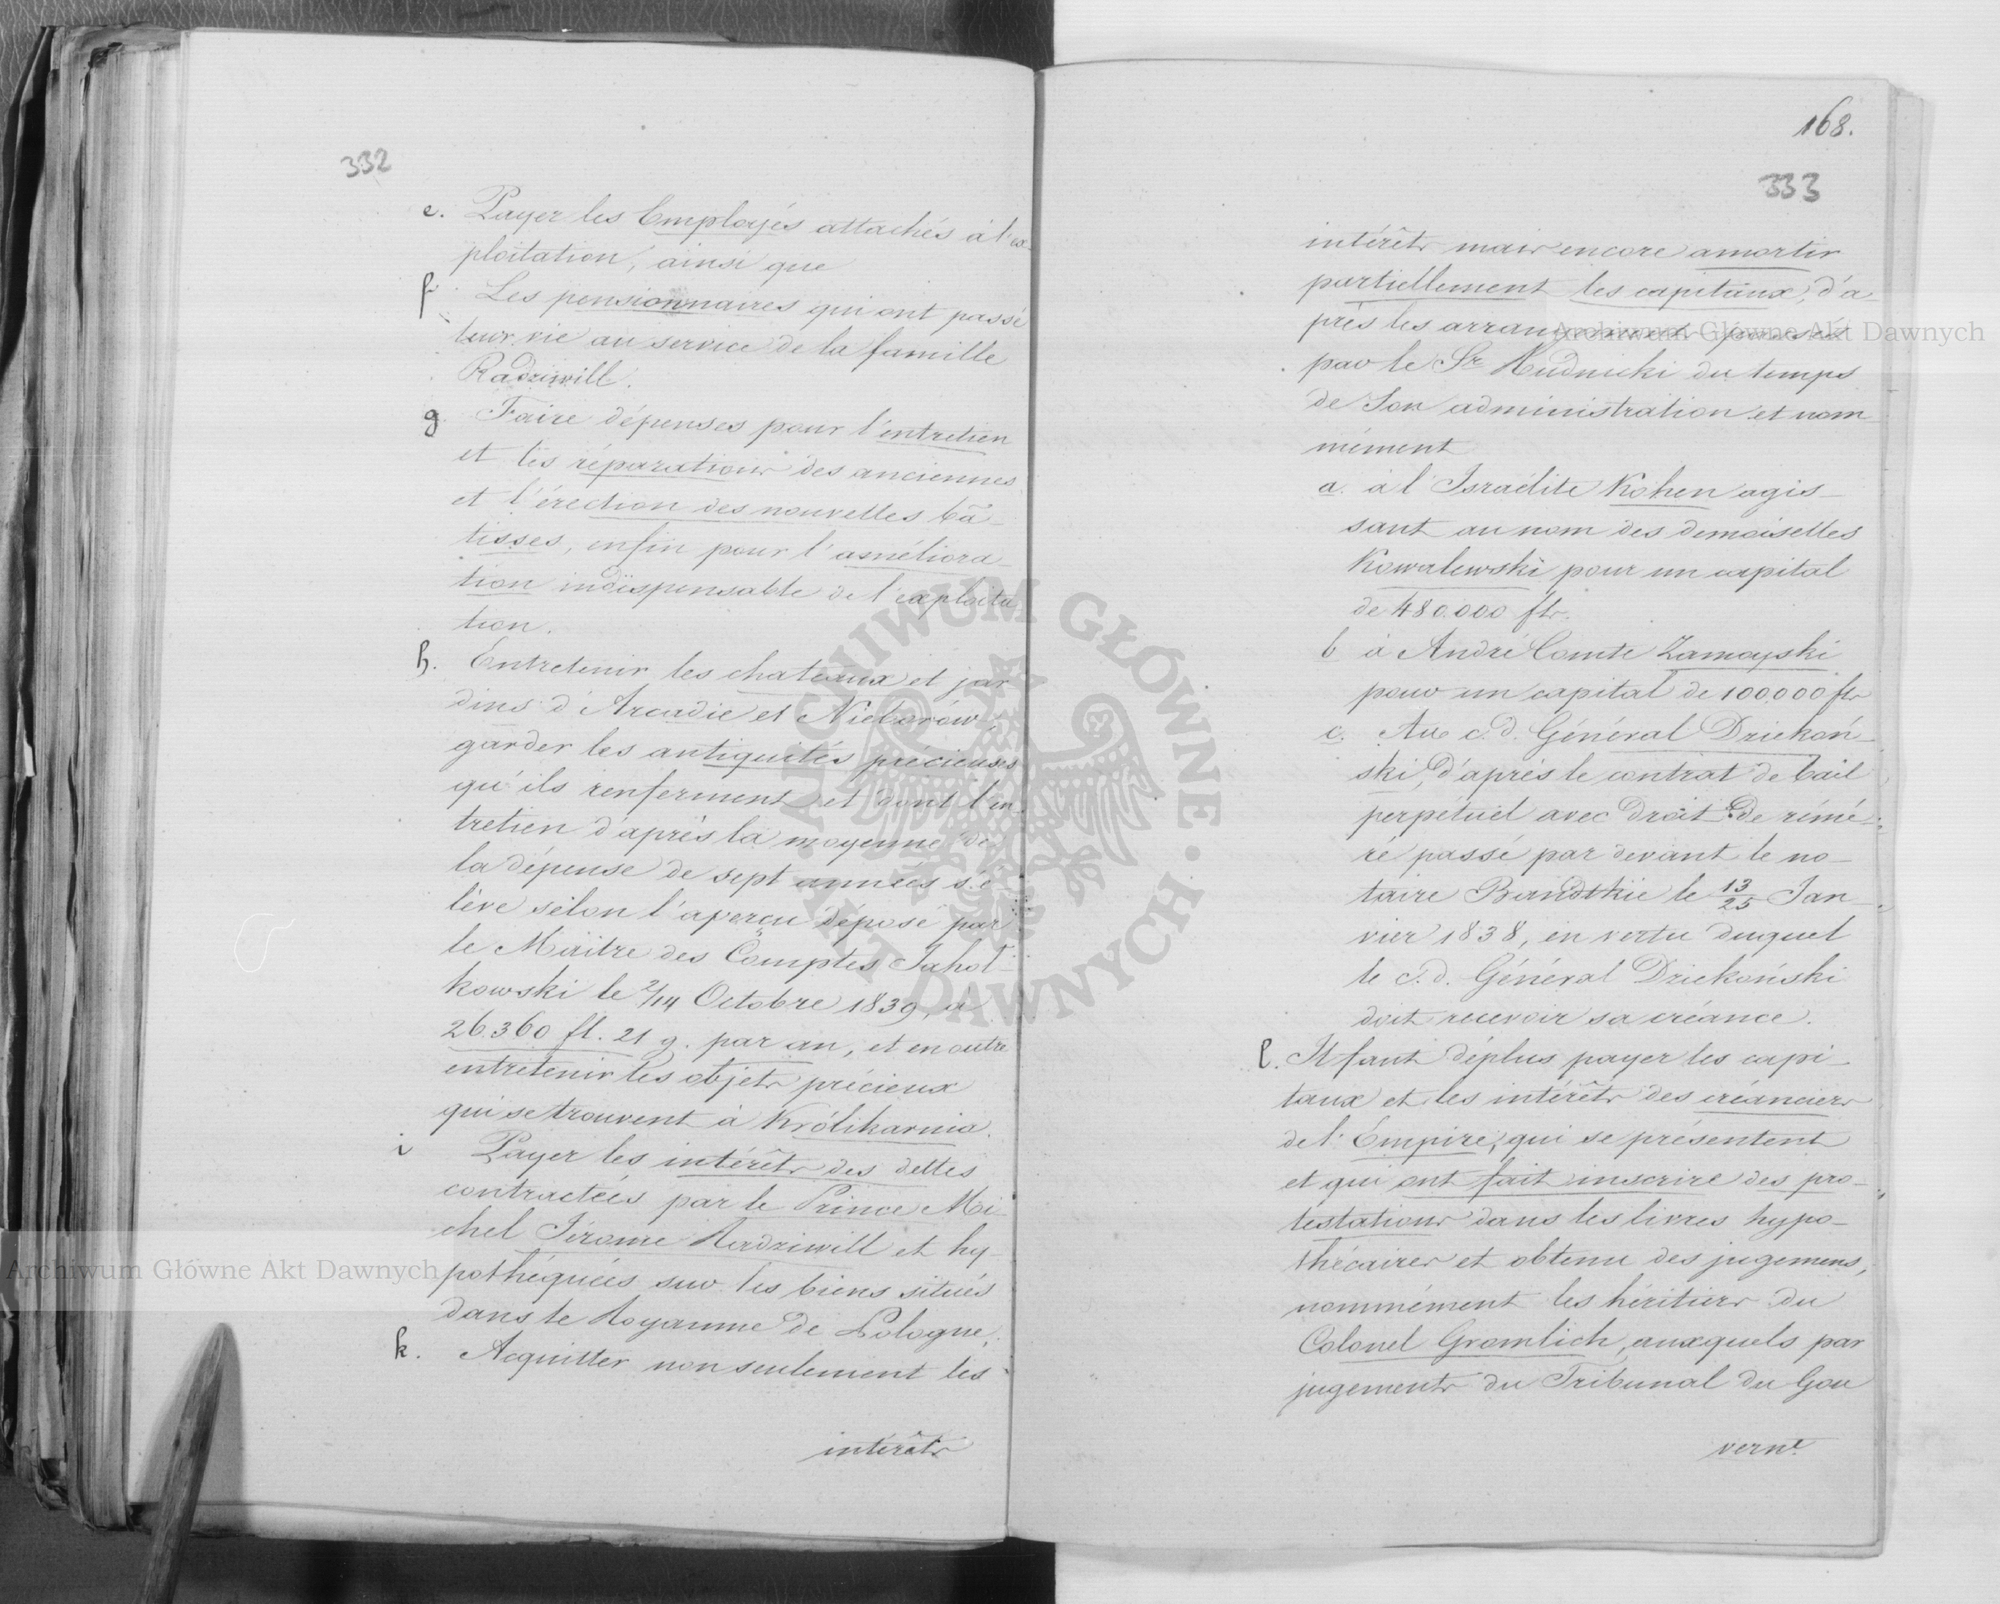 332
e. Payer les Employés attachés à l'ex-
ploitation, ainsi que
f. Les pensionnaires qui ont passé
leur vie au service de la famille
Radziwill.
g Faire dépenses pour l'entretien
et les réparations des anciennes
et l'érection des nouvelles bâ-
tisses, enfin pour l'améliora-
tion indispensable de l'exploita
tion.
h. Entretenir les chateaux et jar
dins d'Arcadie et Nieborów,
garder les antiquités précieuses
qu'ils renferment et dont l'en
tretien d'après la moyenne de
la dépense de sept années s'é
lève selon l'aperçu déposé par
le Maître des Comptes Jahoł-
kowski le 2/14 Octobre 1839, à
26.360 fl. 21 g. par an, et en outre
entretenir les objets précieux
qui se trouvent à Królikarnia.
i Payer les intérêts des dettes
contractées par le Prince Mi
chel Jérome Radziwill et hy-
pothéquées sur les biens situés
dans le Royaume de Pologne.
k. Acquitter non seulement les
intérêts
168.
333
intérêts mais encore amortir
partiellement les capitaux, d'a-
près les arrangemens passés
par le Sr Rudnicki du temps
de Son administration et nom
mément
a. à l'Israélite Kohen agis-
sant au nom des demoiselles
Kowalewski pour un capital
de 480.000 fls.
b à André Comte Zamoyski
pour un capital de 100.000 fls
c. Au c.d. Général Dziekoń-
ski, d'après le contrat de bail
perpétuel avec Droit de rémé-
ré passé par devant le no-
taire Bandtkie le 13/25 Jan-
vier 1838, en vertu duquel
le c.d. Général Dziekoński
doit recevoir sa créance.
l. Il faut déplus payer les capi-
taux et les intérêts des créanciers
de l'Empire, qui se présentent
et qui ont fait inscrire des pro-
testations dans les livres hypo-
thécaires et obtenu des jugemens,
nommément les héritiers du
Colonel Gromlich, auxquels par
jugements du Tribunal du Gou
vernt
Archiwum Główne Akt Dawnych
Archiwum Główne Akt Dawnych
ARCHIWUM GŁÓWNE · AKT DAWNYCH ·